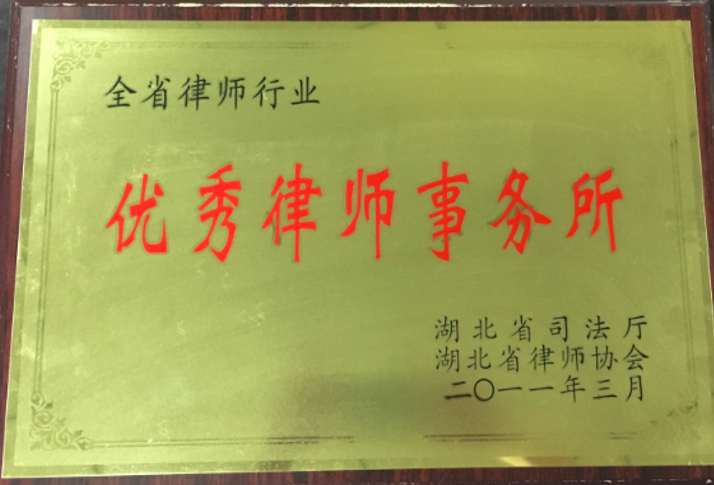 全省律师行业
优秀律师事务所
湖北省司法厅
湖北省律师协会
二〇一一年三月